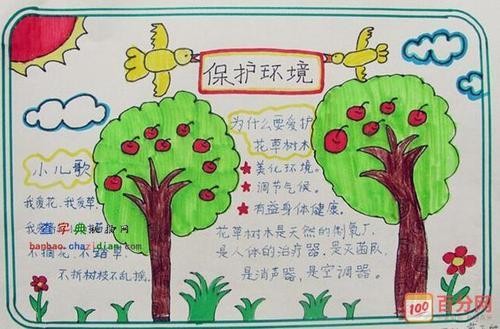 保护环境
小儿歌
我爱花,我爱草,
我爱
不摘花,不踏草,
不折树枝不乱摇。
为什么要爱护
花草树木
★美化环境。
★调节气候。
★有益身体健康。
花草树木是天然的制氧厂,
是人体的治疗器,是灭菌队,
是消声器,是空调器。
查字典
banbao.chazidian.com
100
百分网